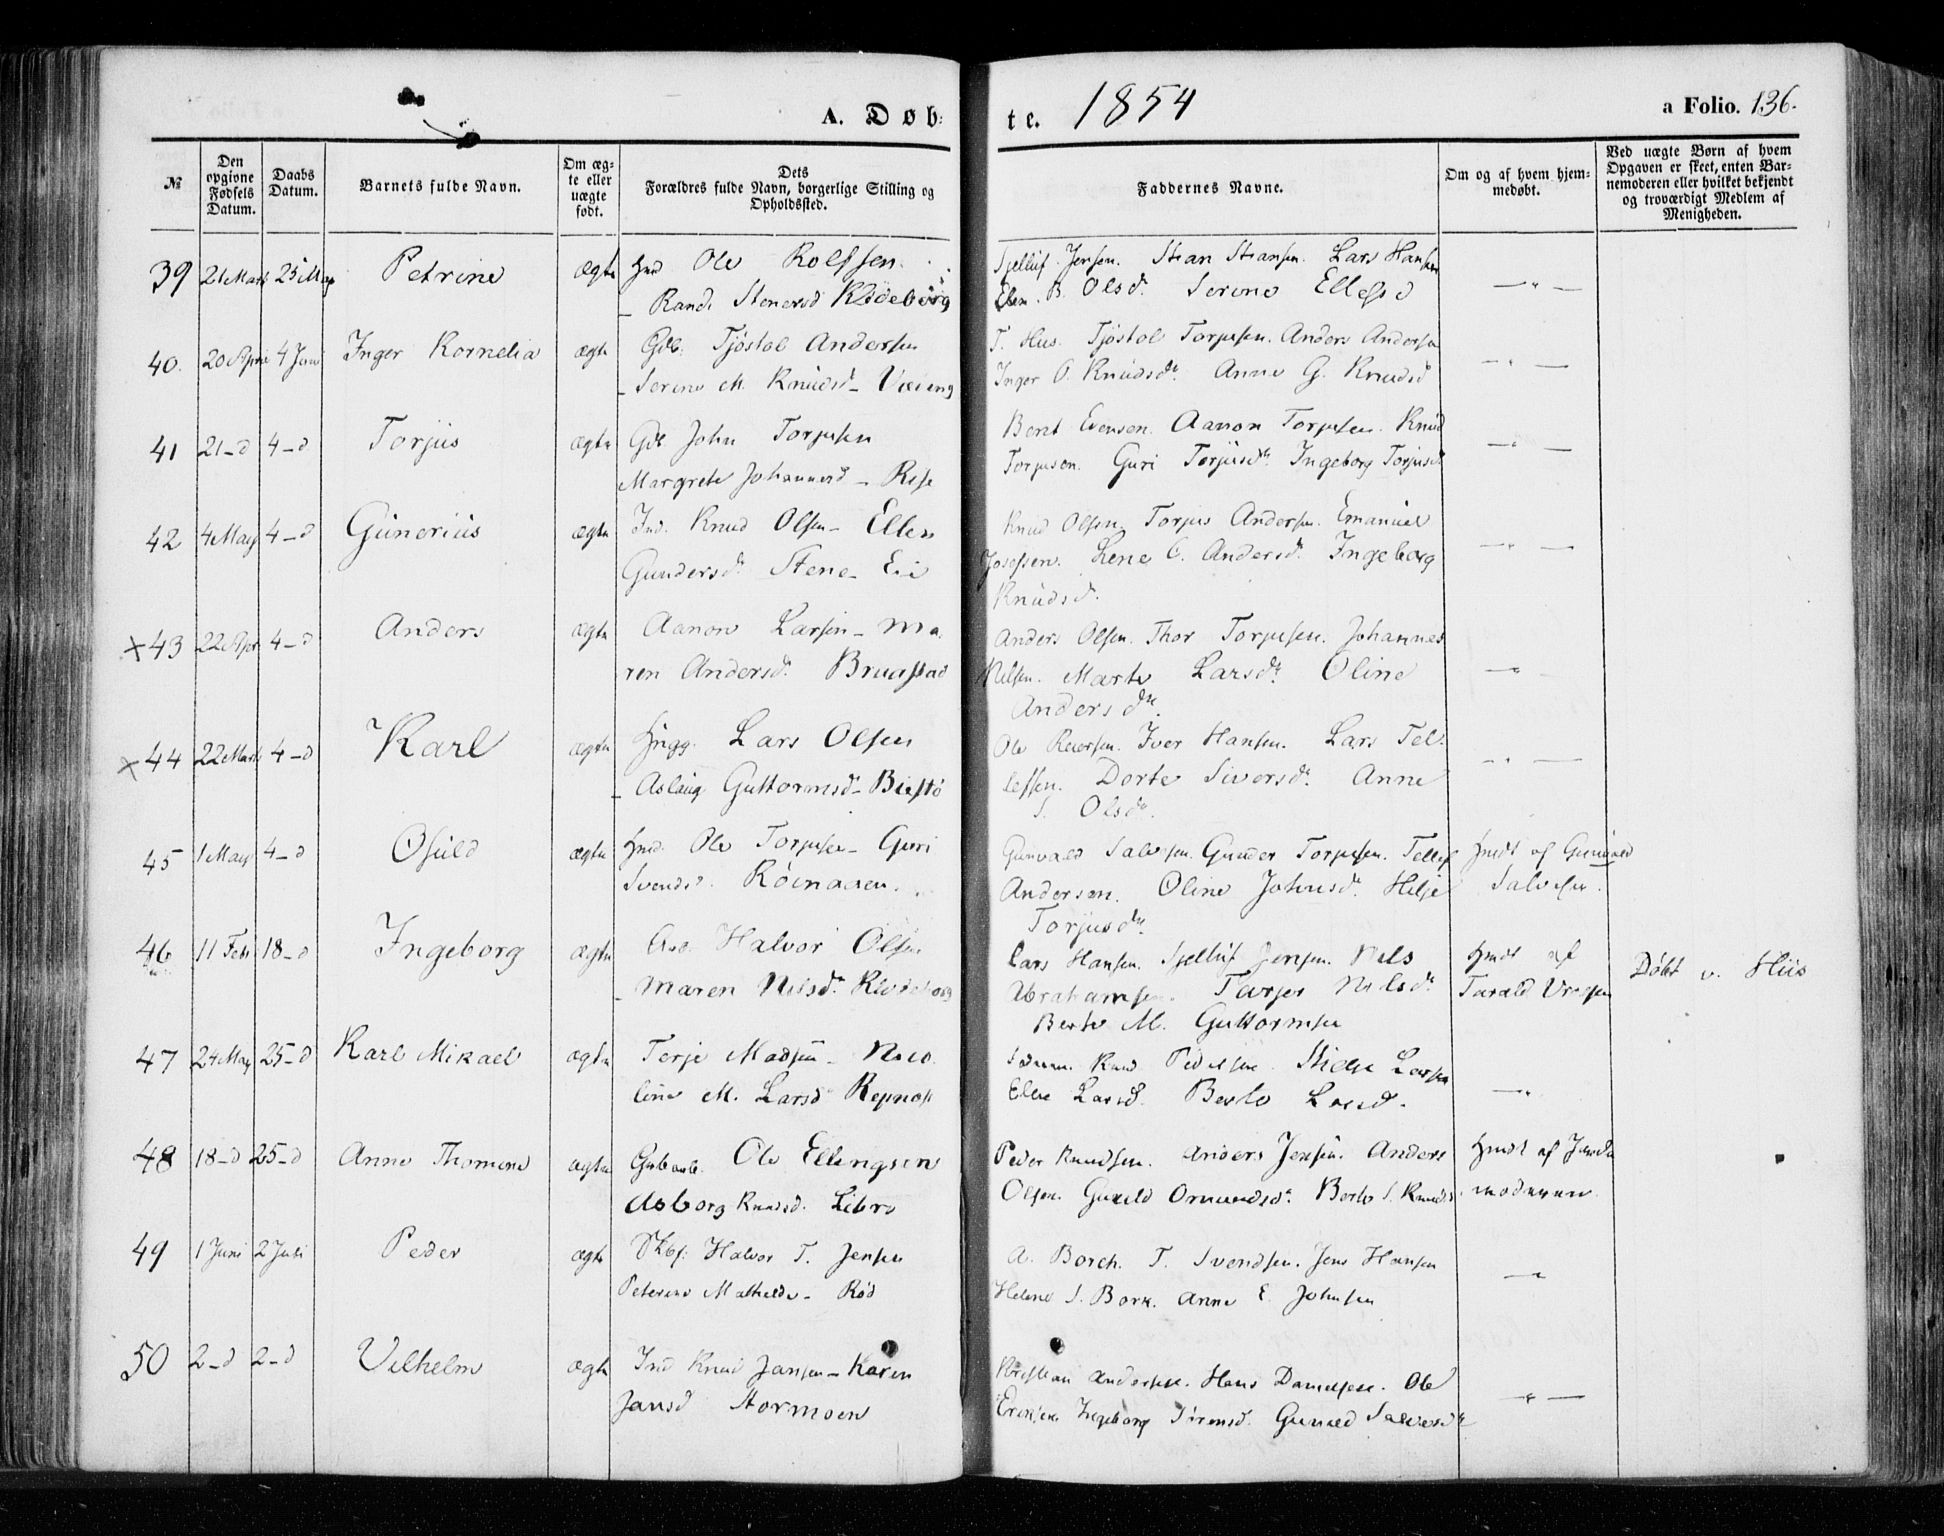 A. Døb-
te. 1854
a Folio. 136.
№
Den opgivne Fødsels Datum.
Daabs Datum.
Barnets fulde Navn.
Om ægte eller uægte født.
Dets Forældres fulde Navn, borgerlige Stilling og Opholdssted.
Faddernes Navne.
Om og af hvem hjemmedøbt.
Ved uægte Børn af hvem Opgaven er skeet, enten Barnemoderen eller hvilket bekjendt og troværdigt Medlem af Menigheden.
39 21 Marts 25 May Petrine ægte Hmd Ole Rolfsen.
Stian Stiansen. Lars Hansen
Randi Stenersd Klødeborg
B. Olsd. Serine Ellefsd
40. 20 April 4 Juni Inger Kornelia ægte Gdb. Tjøstol Andersen
T. Hus. Tjøstol Torjusen. Anders Andersen
Serine M. Knudsd
Inger O. Knudsdr. Anne G. Knudsd
41 21-d 4-d Torjus ægte Gdb John Torjusen
Bernt Evensen. Aanon Torjusen. Knud
Margrete Johannesd - Rise
Torjusen. Guri Torjusdr. Ingeborg Torjusd
42 4 May 4-d Gunerius ægte Ind. Knud Olsen - Ellen
Knud Olsen. Torjus Andersen. Emanuel
Gundersdr. Stene - Eie
Josefsen. Lene C. Andersdr. Ingeborg
Knudsd.
43 22 Apr 4-d Anders ægte Aanon Larsen - Ma-
Anders Olsen. Thor Torjusen. Johannes
ren Andersdr. Bruastad
Nilsen. Marte Larsdr. Oline
Andersdr.
44 22 Marts 4-d Karl ægte Lars Olsen
Ole Reiersen. Iver Hansen. Lars Tel-
Aslaug Guttormsd - Biestø
lefsen. Dorte Siversdr. Anne
S. Olsdr.
45 1 May 4-d Osuld ægte Hmd. Ole Torjusen - Guri
Gunvald Salvesen. Gunder Torjusen. Tellef
Hmdt af Gunvald
Svendsd. Röinaasen.
Andersen. Oline Johnsdr. Helje
Salvesen.
Torjusdr.
46 11 Feb 18-d Ingeborg ægte Halvor Olsen
Lars Hansen. Jensen. Nils
Hmdt af
Døbt v. Hiis
Maren Nilsdr. Klødeborg
Abrahamsen. Nilsdr.
Tarald
Berte M. Guttormsen
47 24 May 25-d Karl Mikael ægte Terje Madsen - Nico-
Knud Pedersen. Larsen
line M. Larsd
Ellen Larsd. Berte Larsd.
48 18-d 25-d Anne Thomine ægte Ole Ellingsen
Peder Knudsen. Anders Jensen. Anders
Hmdt af Jorde
Asborg Knudsd. Libro
Olsen. Gunild Omundsdr. Berte S. Knudsd.
moderen.
49 1 Juni 2 Juli Peder ægte Halvor T. Jensen
A. Borch. T. Svendsen. Jens Hansen
Peterine Mathilde - Rød
Helene S. Bork. Anne E. Johnsen
50 2-d 2-d Vilhelm ægte Ind Knud Jansen - Karen
Kristian Andersen. Hans Danielsen. Ole
Jansd Stormoen
Eriksen Ingeborg Sørensd. Gunild Salvesdr